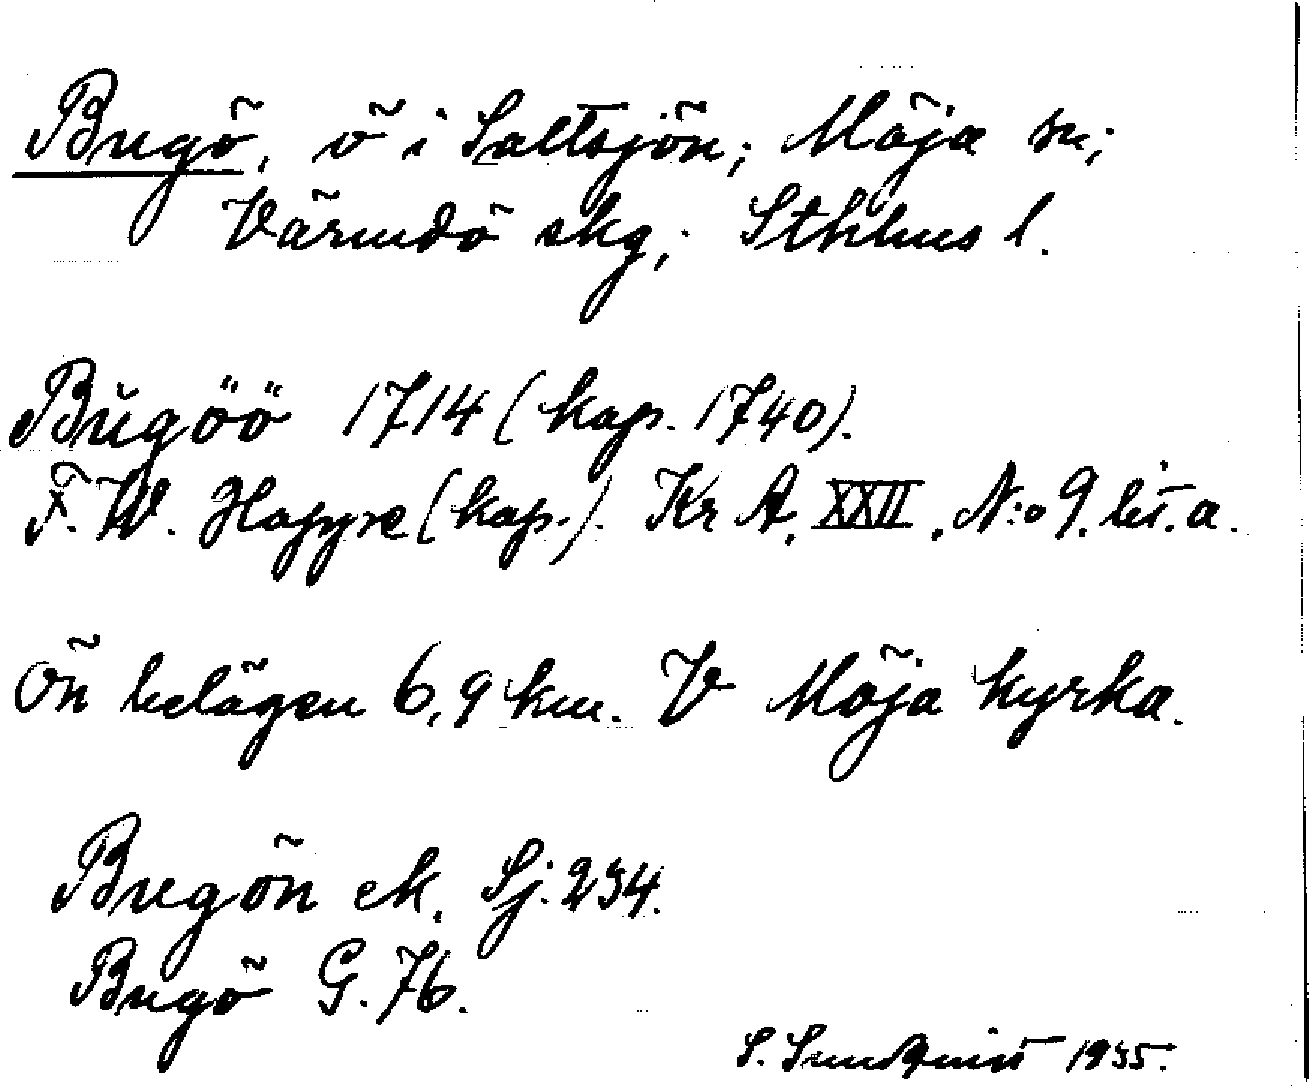 Bugö, ö i Saltsjön; Möja sn;
Värmdö skg; Sthlms l.
Bŭgöö 1714 (kap. 1740).
F. W. Hapyre (kap.). Kr A. XXII. N:o 9. lit. a.
Ön belägen 6,9 km. V Möja kyrka.
Bugön ek. Sj. 234.
Bugö G. 76.
S. Sundqvist 1935.